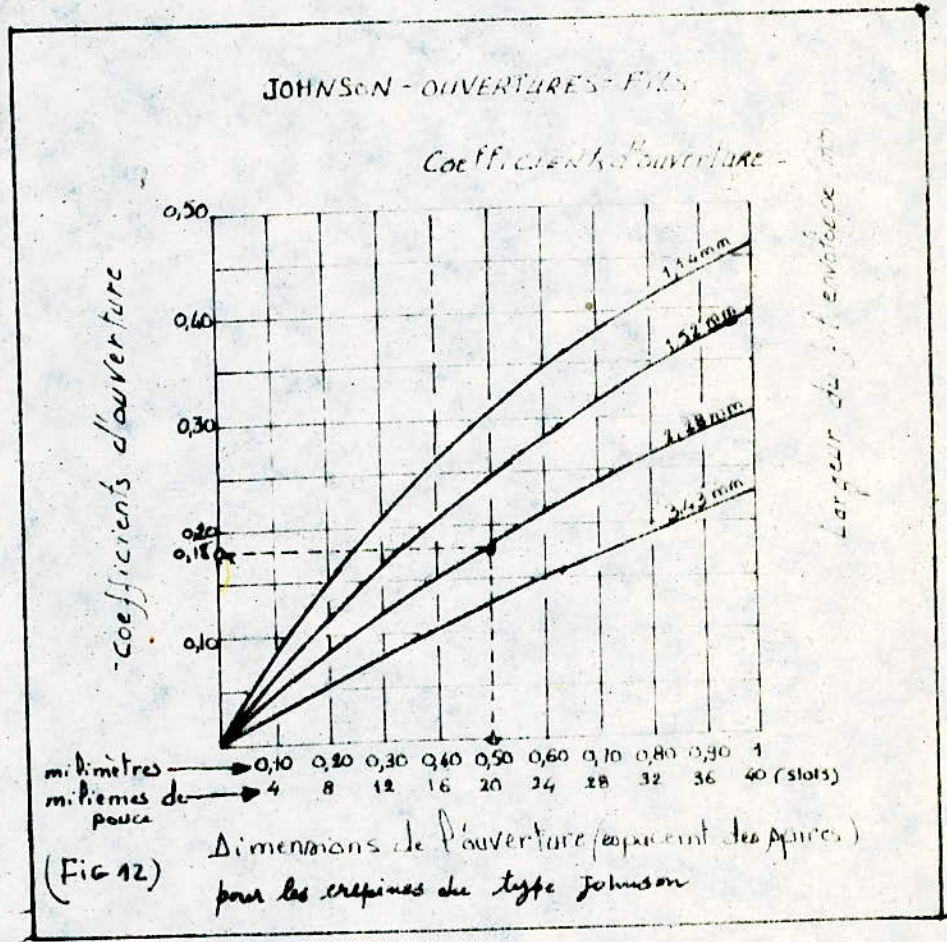 JOHNSON - OUVERTURES - FILS
Coefficients d'ouverture -
Coefficients d'ouverture
Largeur du fil enveloppe mm
0,50
0,40
0,30
0,20
0,180
0,10
1,14 mm
1.52 mm
2,28 mm
3.43 mm
milimètres 0,10 0,20 0,30 0,40 0,50 0,60 0,70 0,80 0,90 1
miliemes de pouce 4 8 12 16 20 24 28 32 36 40 (slots)
Dimensions de l'ouverture (espacemt des spires)
pour les crepines du type Johnson
(FiG 12)